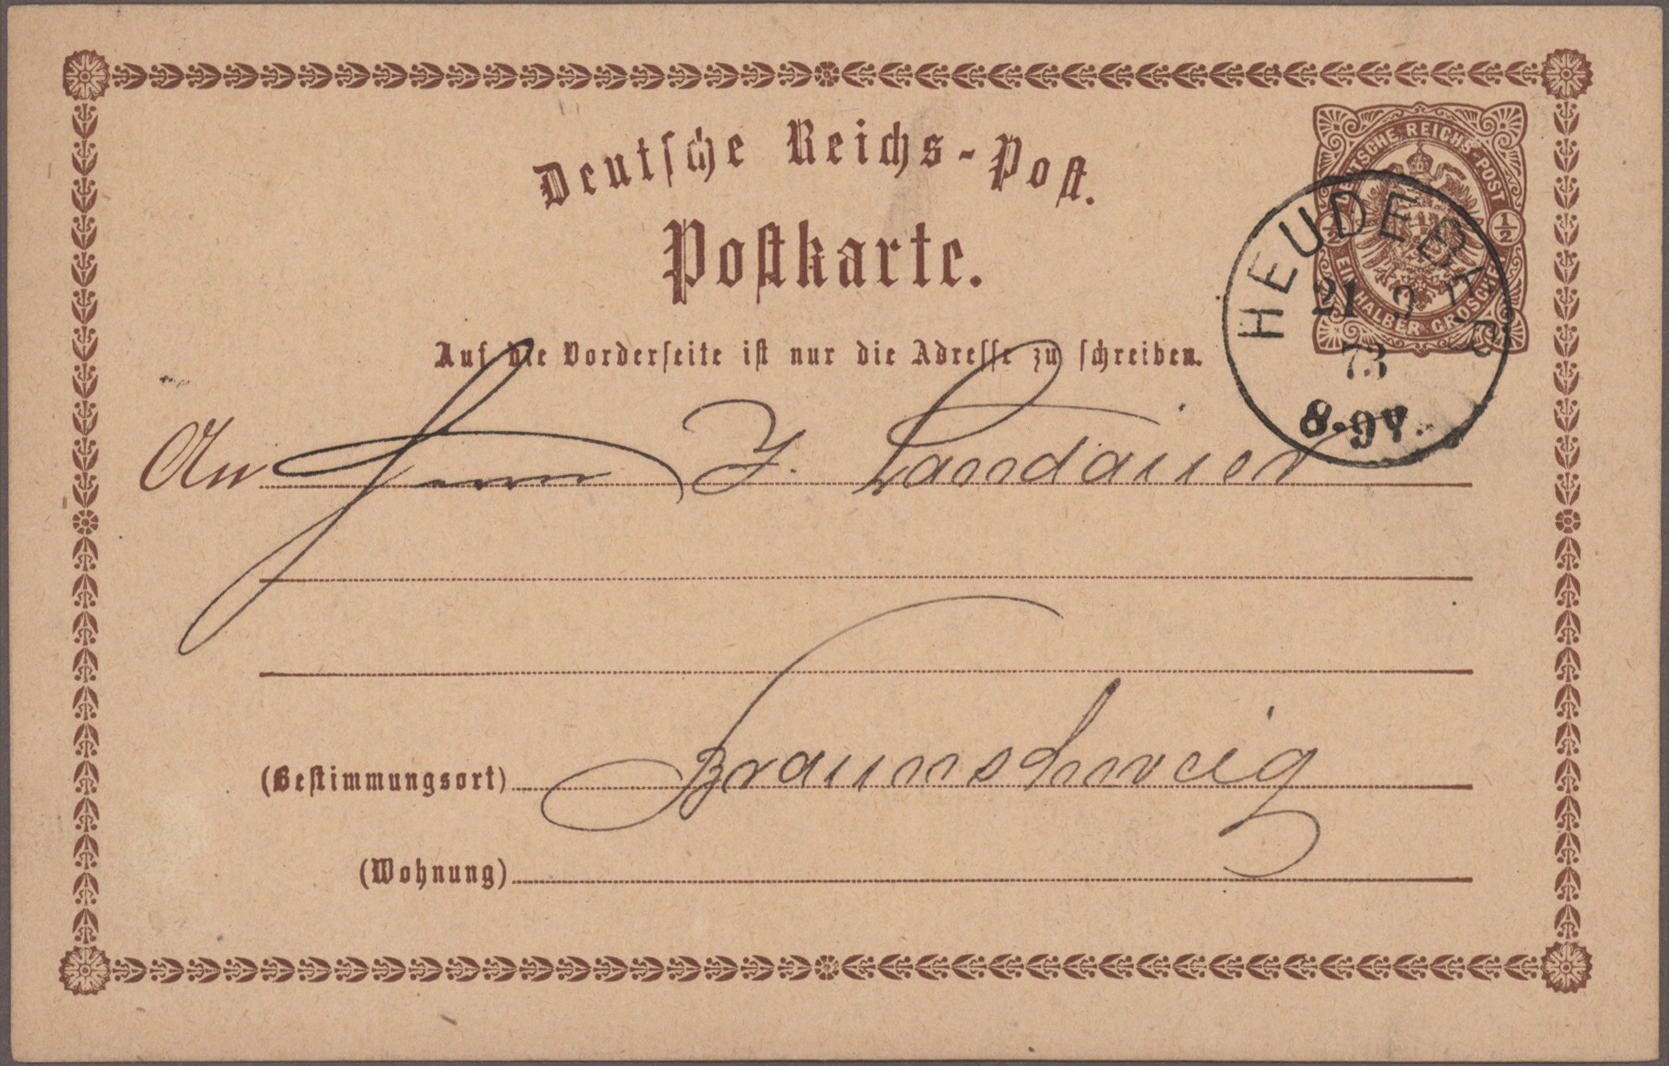 Deutsche Reichs-Post.
Postkarte.
DEUTSCHE REICHS-POST
1/2 1/2
EIN HALBER GROSCHEN
HEUDEBER
21 9
73
8-9V.
Auf die Vorderseite ist nur die Adresse zu schreiben.
An Herrn J. Landauer
(Bestimmungsort) Braunschweig
(Wohnung)